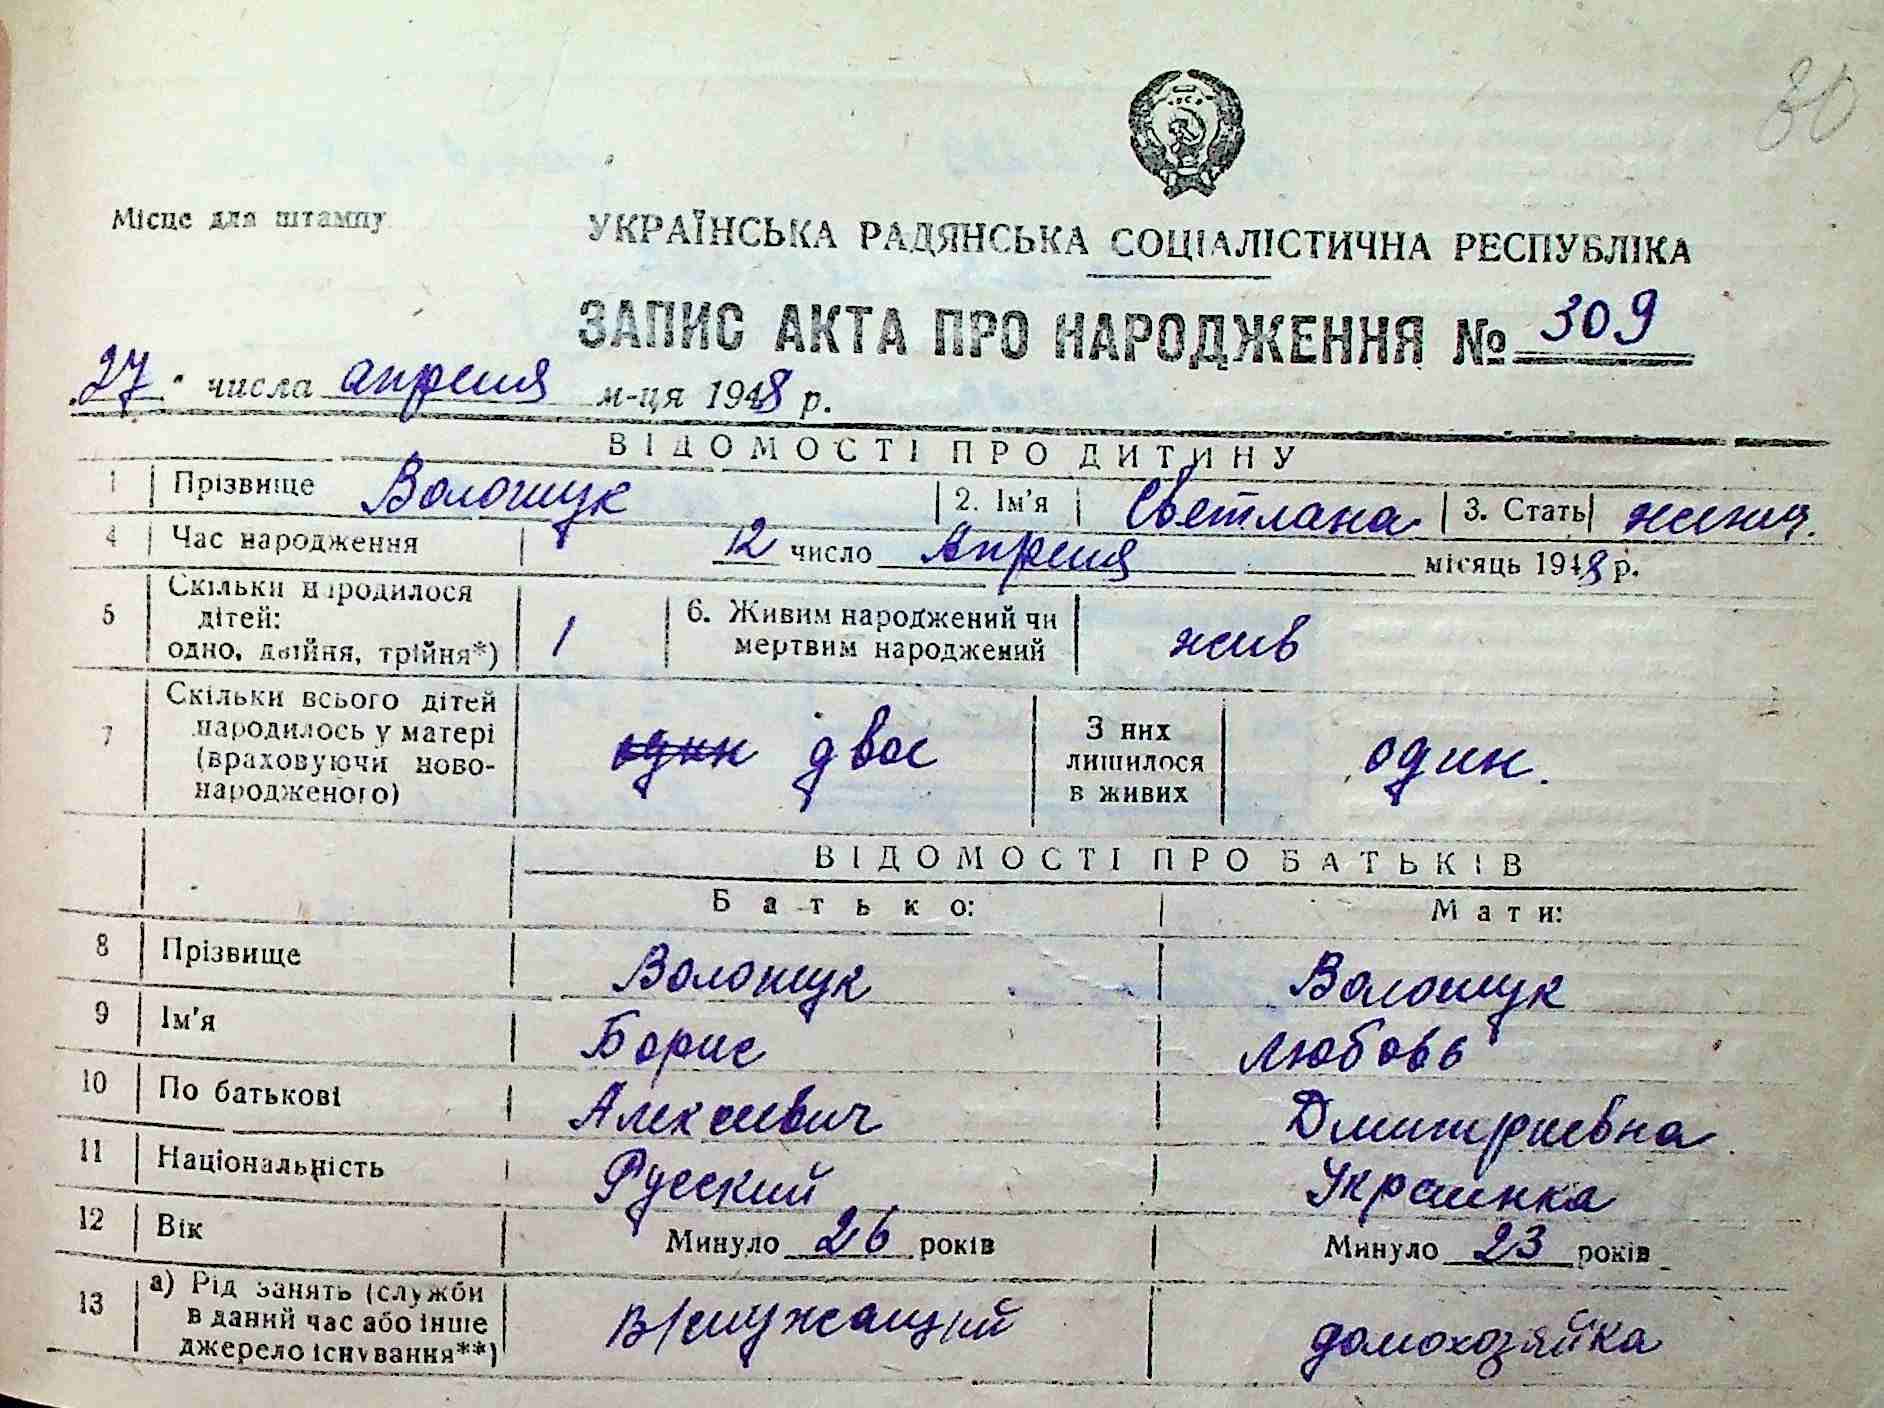 30
Місце для штампу
УКРАЇНСЬКА РАДЯНСЬКА СОЦІАЛІСТИЧНА РЕСПУБЛІКА
ЗАПИС АКТА ПРО НАРОДЖЕННЯ № 309
27 числа апреля м-ця 1948 р.
ВІДОМОСТІ ПРО ДИТИНУ
1 Прізвище Волощук 2. Ім'я Светлана 3. Стать женщ.
4 Час народження 12 число Апреля місяць 1948 р.
5 Скільки народилося дітей: одно, двійня, трійня*) 1 6. Живим народжений чи мертвим народжений жив
7 Скільки всього дітей народилось у матері (враховуючи новонародженого) один двое З них лишилося в живих один.
ВІДОМОСТІ ПРО БАТЬКІВ
Батько: Мати:
8 Прізвище Волощук Волощук
9 Ім'я Борис Любовь
10 По батькові Алексеевич Дмитриевна
11 Національність Русский Украинка
12 Вік Минуло 26 років Минуло 23 років
13 а) Рід занять (служби в даний час або інше джерело існування**) В/служащий домохозяйка